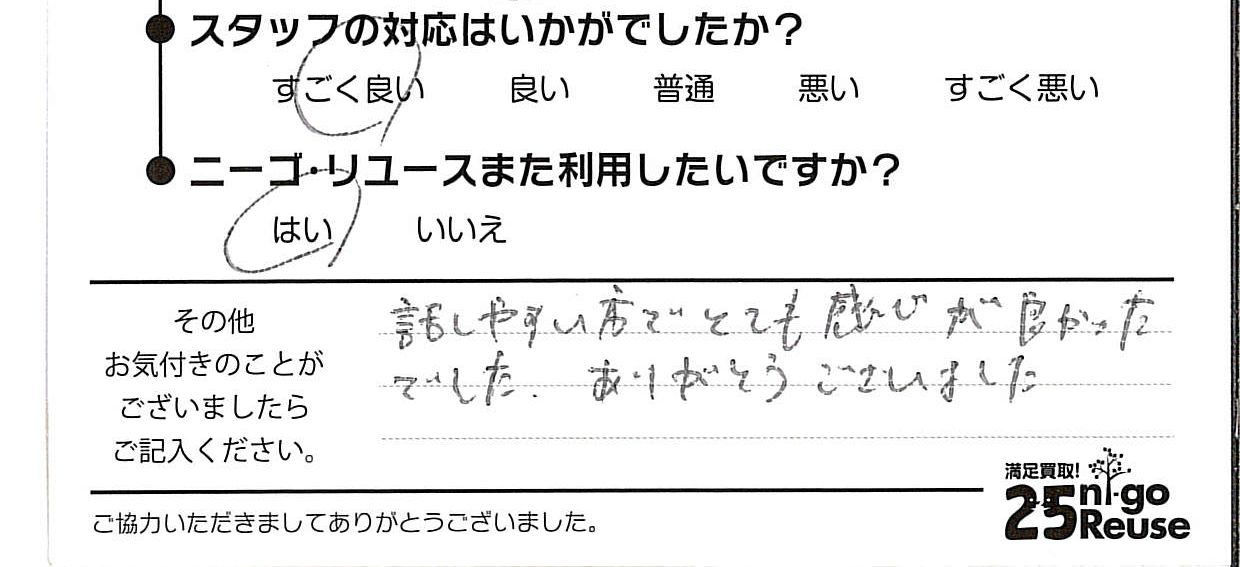 スタッフの対応はいかがでしたか？
すごく良い 良い 普通 悪い すごく悪い
ニーゴ・リユースまた利用したいですか？
はい いいえ
その他
お気付きのことが
ございましたら
ご記入ください。
話しやすい方でとても感じが良かった
でした. ありがとうございました
満足買取!
25 ni-go
Reuse
ご協力いただきましてありがとうございました。